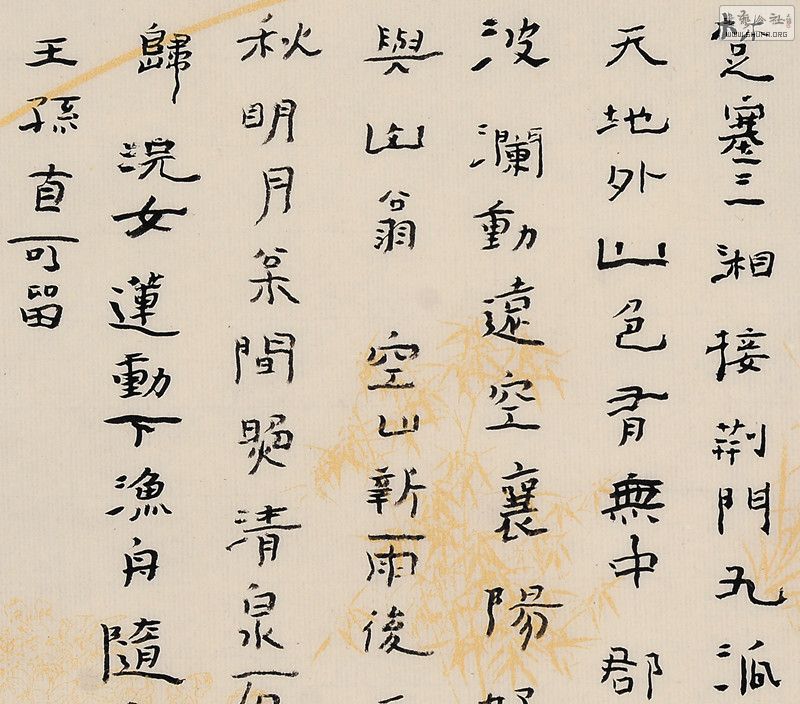 楚塞三湘接荆門九派
天地外山色有無中郡
波瀾動遠空襄陽好
與山翁 空山新雨後
秋明月松間照清泉石
歸浣女蓮動下漁舟隨
王孫自可留
WWW.SHUFA.ORG